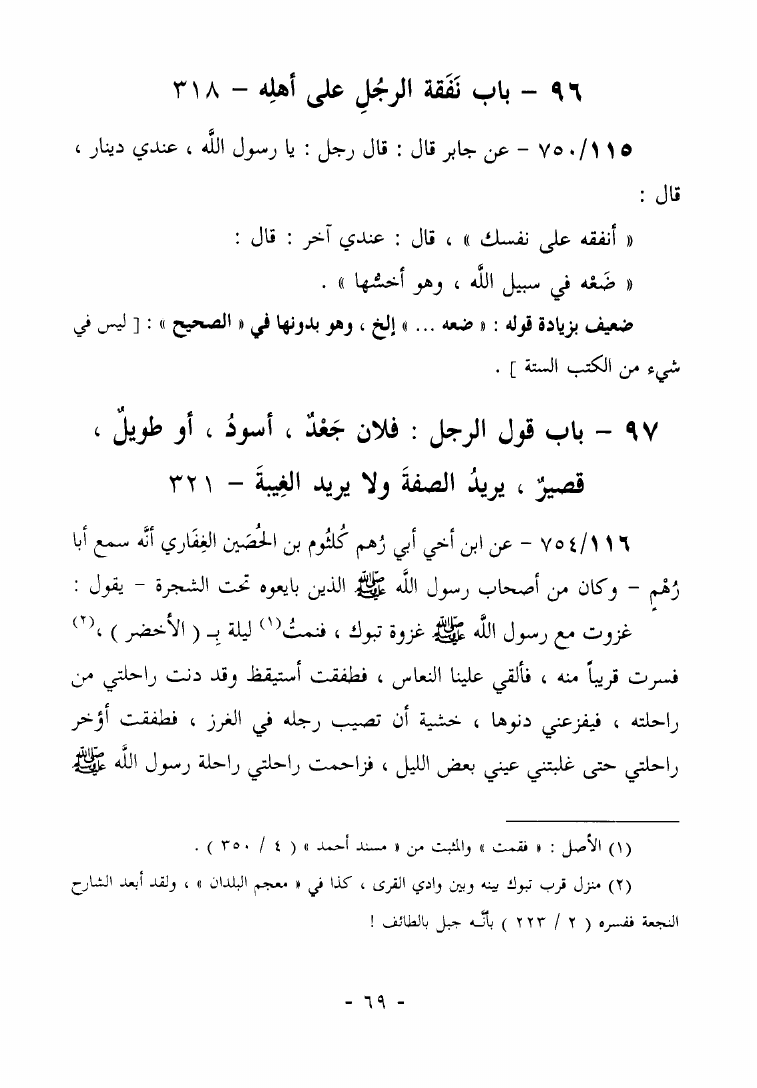 ٩٦ – باب نَفَقة الرجُلِ على أهلِه – ٣١٨
٧٥٠/١١٥ – عن جابر قال : قال رجل : يا رسول اللَّه ، عندي دينار ،
قال :
« أنفقه على نفسك » ، قال : عندي آخر : قال :
« ضَعْه في سبيل اللَّه ، وهو أخسُّها » .
ضعيف بزيادة قوله : « ضعه ... » إلخ ، وهو بدونها في « الصحيح » : [ ليس في
شيء من الكتب الستة ] .
٩٧ – باب قول الرجل : فلان جَعْدٌ ، أسودُ ، أو طويلٌ ،
قصيرٌ ، يريدُ الصفةَ ولا يريد الغِيبةَ – ٣٢١
٧٥٤/١١٦ – عن ابن أخي أبي رُهم كُلثُوم بن الحُصَين الغِفَاري أنَّه سمع أبا
رُهْمٍ – وكان من أصحاب رسول اللَّه ﷺ الذين بايعوه تحت الشجرة – يقول :
غزوت مع رسول اللَّه ﷺ غزوة تبوك ، فنمتُ(١) ليلة بِـ ( الأخضر ) ،(٢)
فسرت قريباً منه ، فألقي علينا النعاس ، فطفقت أستيقظ وقد دنت راحلتي من
راحلته ، فيفزعني دنوها ، خشية أن تصيب رجله في الغرز ، فطفقت أؤخر
راحلتي حتى غلبتني عيني بعض الليل ، فزاحمت راحلتي راحلة رسول اللَّه ﷺ
(١) الأصل : « فقمت » والمثبت من « مسند أحمد » ( ٤ / ٣٥٠ ) .
(٢) منزل قرب تبوك بينه وبين وادي القرى ، كذا في « معجم البلدان » ، ولقد أبعد الشارح
النجعة ففسره ( ٢ / ٢٢٣ ) بأنَّـه جبل بالطائف !
- ٦٩ -